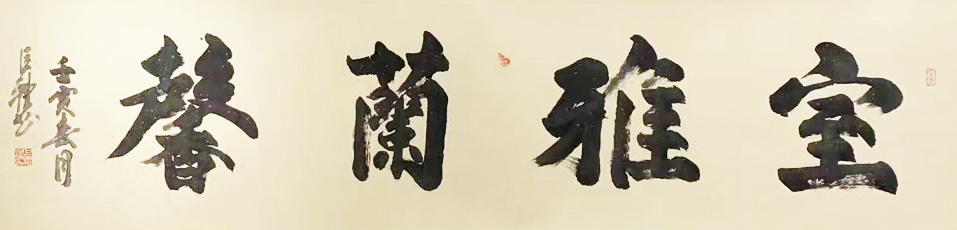 室雅蘭馨
壬寅春月